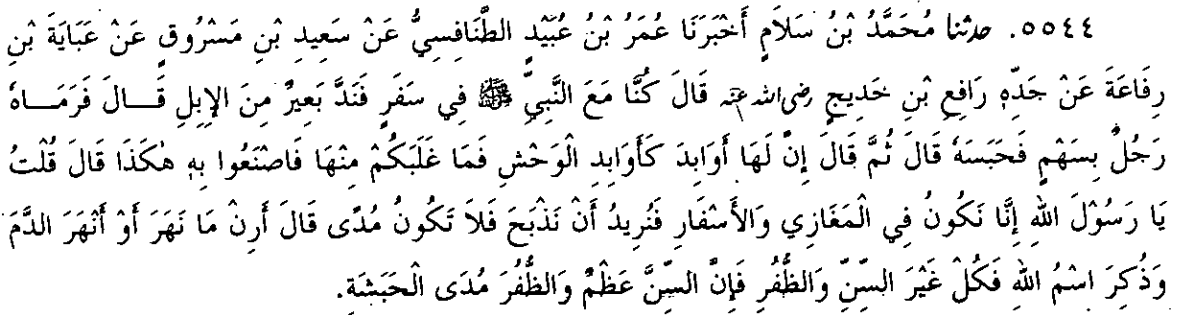 ٥٥٤٤. حدثنا مُحَمَّدُ بْنُ سَلاَمٍ أَخْبَرَنَا عُمَرُ بْنُ عُبَيْدٍ الطَّنَافِسِيُّ عَنْ سَعِيدِ بْنِ مَسْرُوقٍ عَنْ عَبَايَةَ بْنِ
رِفَاعَةَ عَنْ جَدِّهِ رَافِعِ بْنِ خَدِيجٍ رضى الله عنه قَالَ كُنَّا مَعَ النَّبِيِّ ﷺ فِي سَفَرٍ فَنَدَّ بَعِيرٌ مِنَ الإِبِلِ قَـــالَ فَرَمَـــاهُ
رَجُلٌ بِسَهْمٍ فَحَبَسَهُ قَالَ ثُمَّ قَالَ إِنَّ لَهَا أَوَابِدَ كَأَوَابِدِ الْوَحْشِ فَمَا غَلَبَكُمْ مِنْهَا فَاصْنَعُوا بِهِ هٰكَذَا قَالَ قُلْتُ
يَا رَسُوْلَ اللهِ إِنَّا نَكُونُ فِي الْمَغَازِي وَالأَسْفَارِ فَنُرِيدُ أَنْ نَذْبَحَ فَلاَ تَكُونُ مُدًى قَالَ أَرِنْ مَا نَهَرَ أَوْ أَنْهَرَ الدَّمَ
وَذُكِرَ اسْمُ اللهِ فَكُلْ غَيْرَ السِّنِّ وَالظُّفُرِ فَإِنَّ السِّنَّ عَظْمٌ وَالظُّفُرَ مُدَى الْحَبَشَةِ.